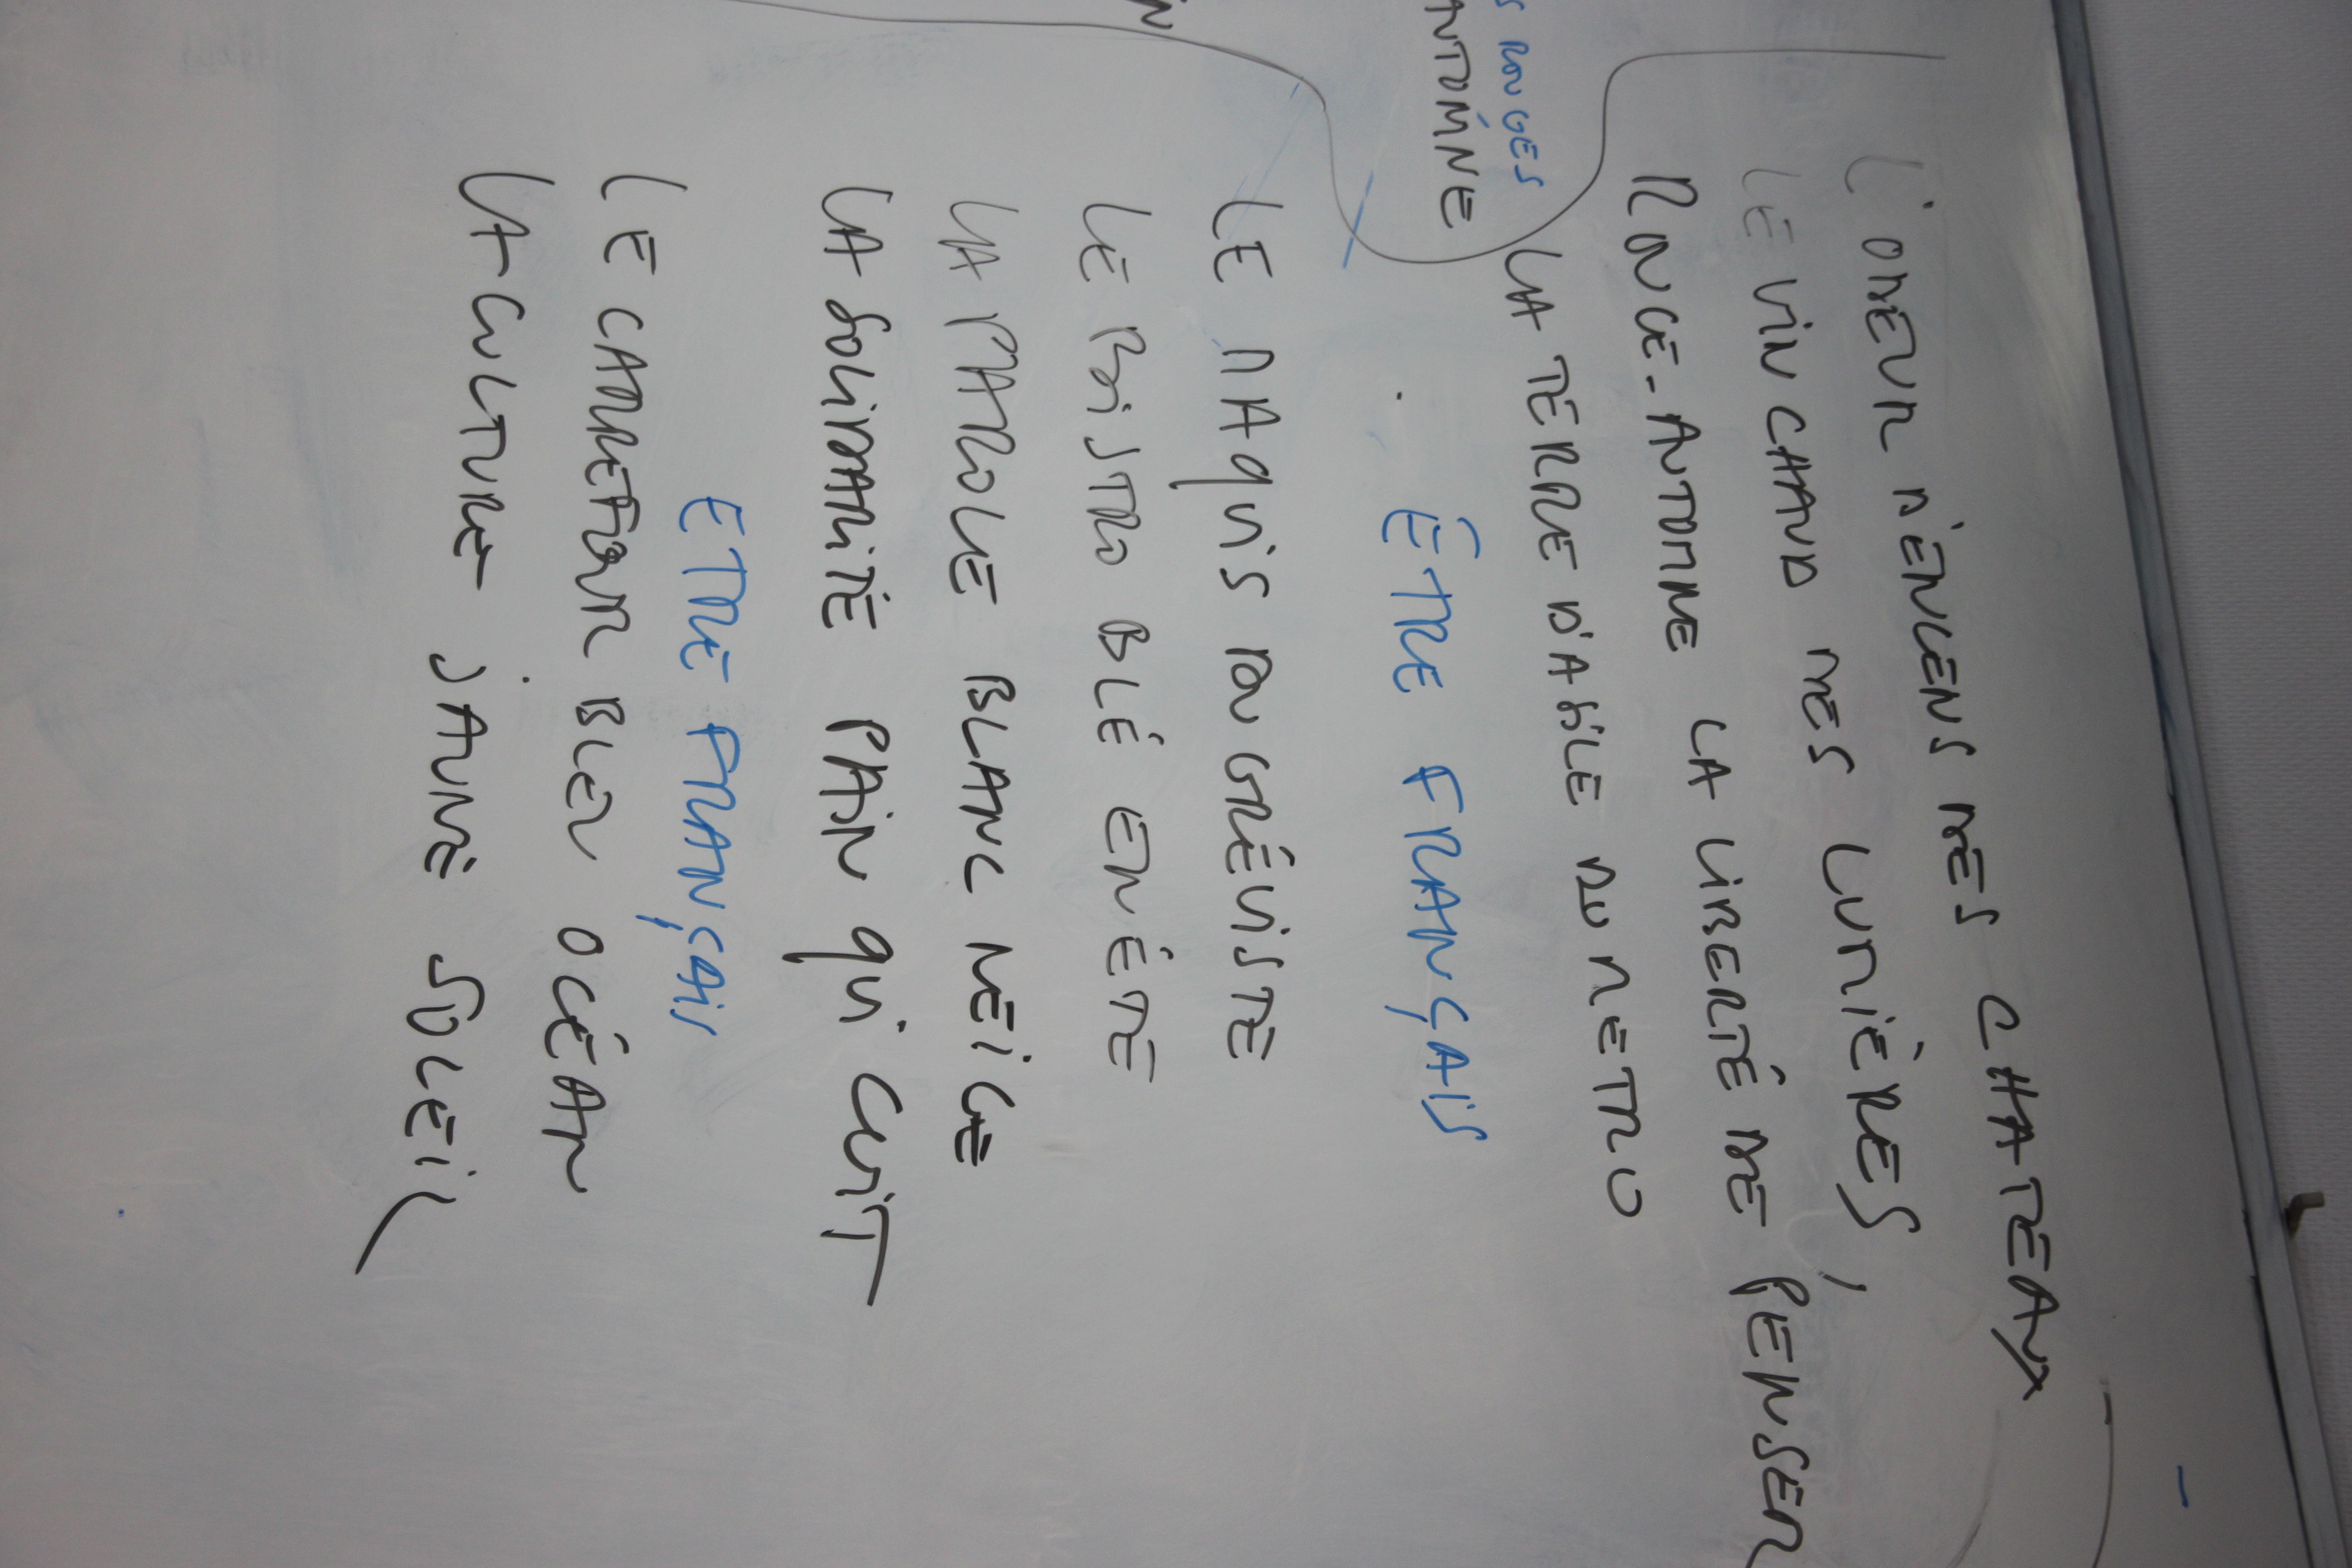 L'ODEUR D'ENCENS DES CHATEAUX
LE VIN CHAUD DES LUMIÈRES,
ROUGE-AUTOMNE LA LIBERTÉ DE PENSER
S ROUGES
LA TERRE D'ASILE DU METRO
AUTOMNE
ÊTRE FRANÇAIS
LE MAQUIS ROUGRÉVISTE
LE BISTRO BLÉ EN ÉTÉ
LA PAROLE BLANC NEIGE
LA SOLIDARITÉ PAIN QUI CUIT
ETRE FRANÇAIS
LE CARREFOUR BLEU OCÉAN
LA CULTURE JAUNE SOLEIL